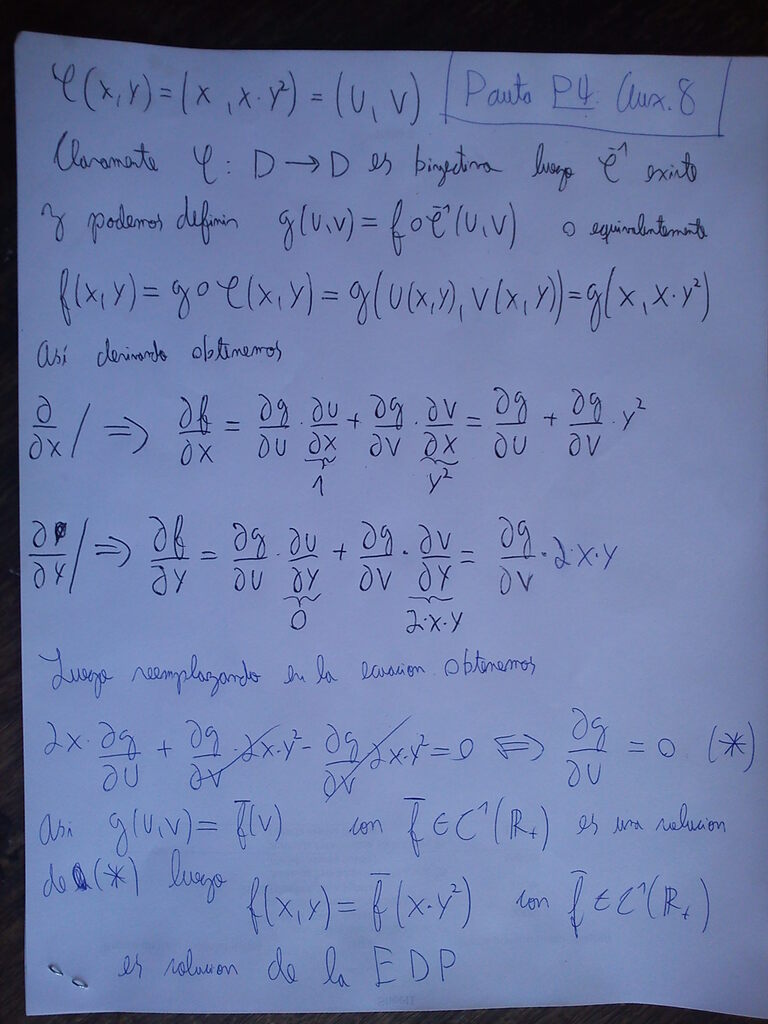 φ(x,y)=(x, x·y²)=(U,V)
Pauta P4: Aux. 8
Claramente φ: D → D es biyectiva luego φ⁻¹ existe
y podemos definir g(U,V)=f∘φ⁻¹(U,V) o equivalentemente
f(x,y)=g∘φ(x,y)=g(U(x,y),V(x,y))=g(x,x·y²)
Así derivando obtenemos
∂/∂x / ⇒ ∂f/∂x = ∂g/∂U · ∂U/∂x + ∂g/∂V · ∂V/∂x = ∂g/∂U + ∂g/∂V · y²
1 y²
∂/∂y / ⇒ ∂f/∂y = ∂g/∂U · ∂U/∂y + ∂g/∂V · ∂V/∂y = ∂g/∂V · 2·x·y
0 2·x·y
Luego reemplazando en la ecuacion obtenemos
2x·∂g/∂U + ∂g/∂V · 2x·y² - ∂g/∂V 2x·y² = 0 ⇔ ∂g/∂U = 0 (*)
Asi g(U,V)= f̄(V) con f̄ ∈ C¹(ℝ₊) es una solucion
de (*) luego f(x,y)= f̄(x·y²) con f̄ ∈ C¹(ℝ₊)
es solucion de la EDP